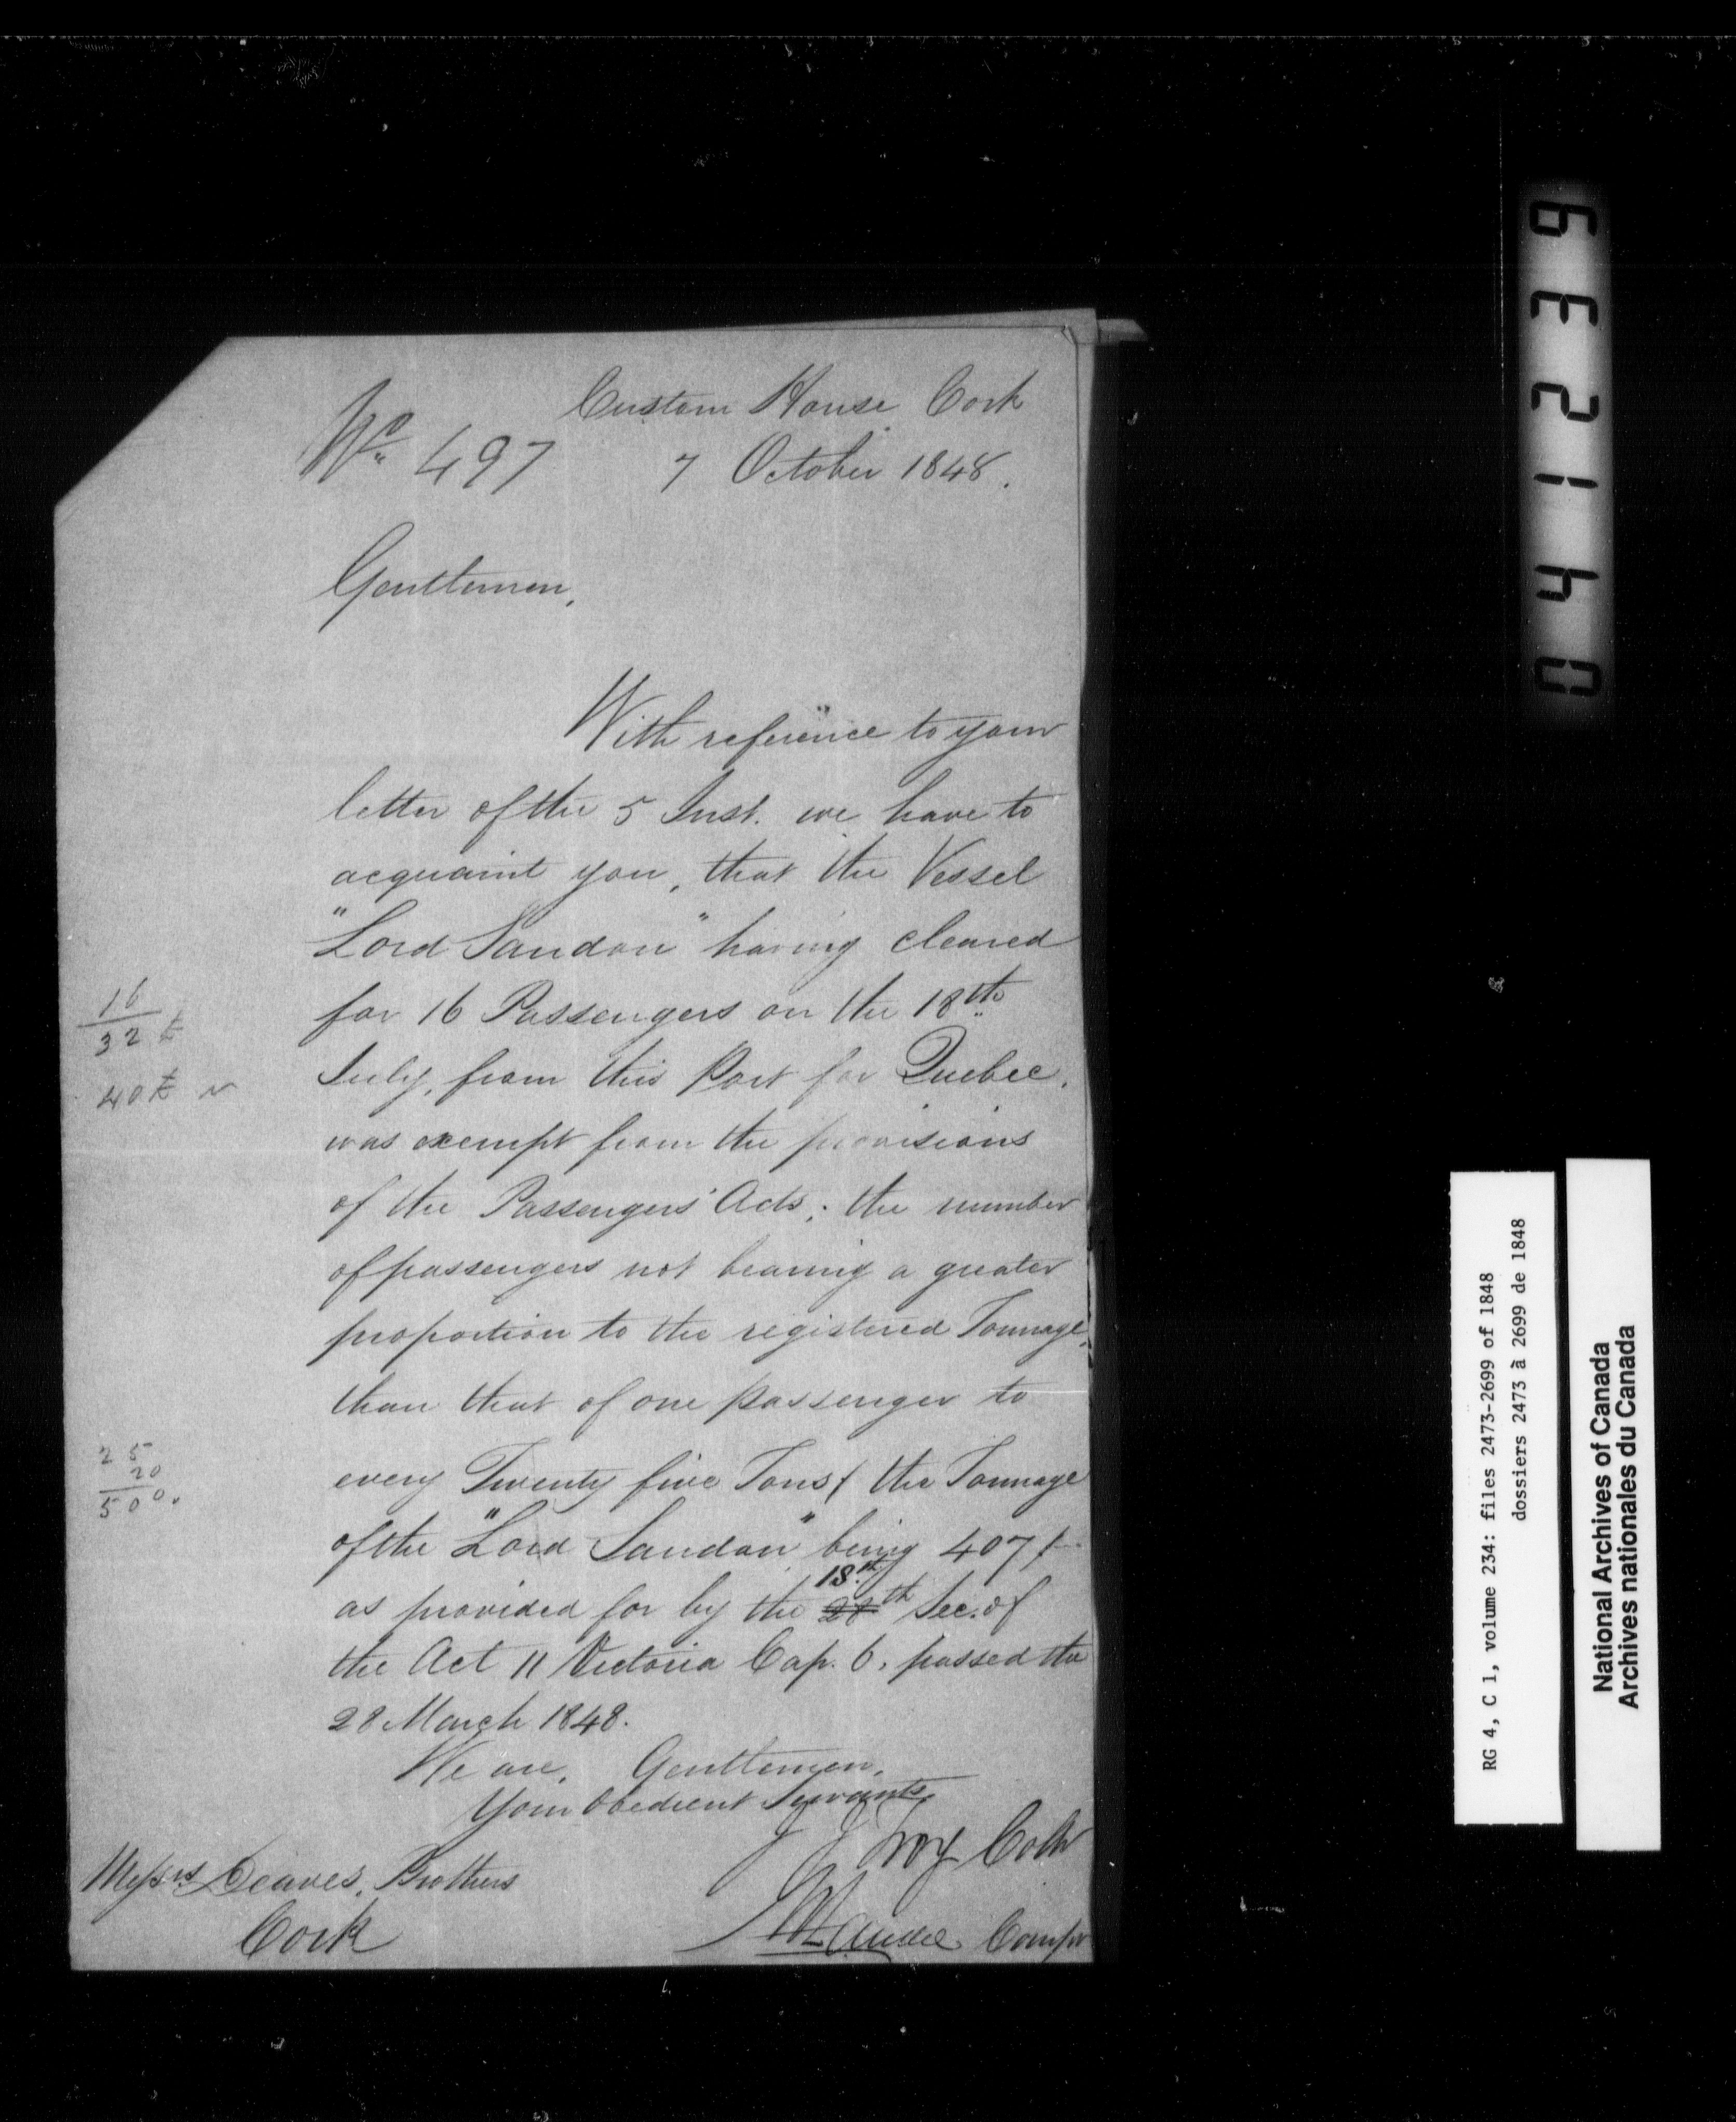 Custom House Cork
No. 497 7 October 1848.
Gentlemen,
With reference to your
letter of the 5 Inst. we have to
acquaint you, that the Vessel
"Lord Sandon" having cleared
for 16 Passengers on the 18th
July, from this Port for Quebec,
was exempt from the provisions
of the Passengers' Acts; the number
of passengers not bearing a greater
proportion to the registered Tonnage,
than that of one passenger to
every Twenty five Tons ( the Tonnage
of the "Lord Sandon" being 407 )
18th
as provided for by the 28th Sec. of
the Act 11 Victoria Cap. 6, passed the
28 March 1848.
We are, Gentlemen,
Your Obedient Servants
Troy Collr
Compr
Messrs Deaves, Brothers
Cork
16
32
40
25
20
500.
932140
RG 4, C 1, volume 234: files 2473-2699 of 1848
dossiers 2473 à 2699 de 1848
National Archives of Canada
Archives nationales du Canada